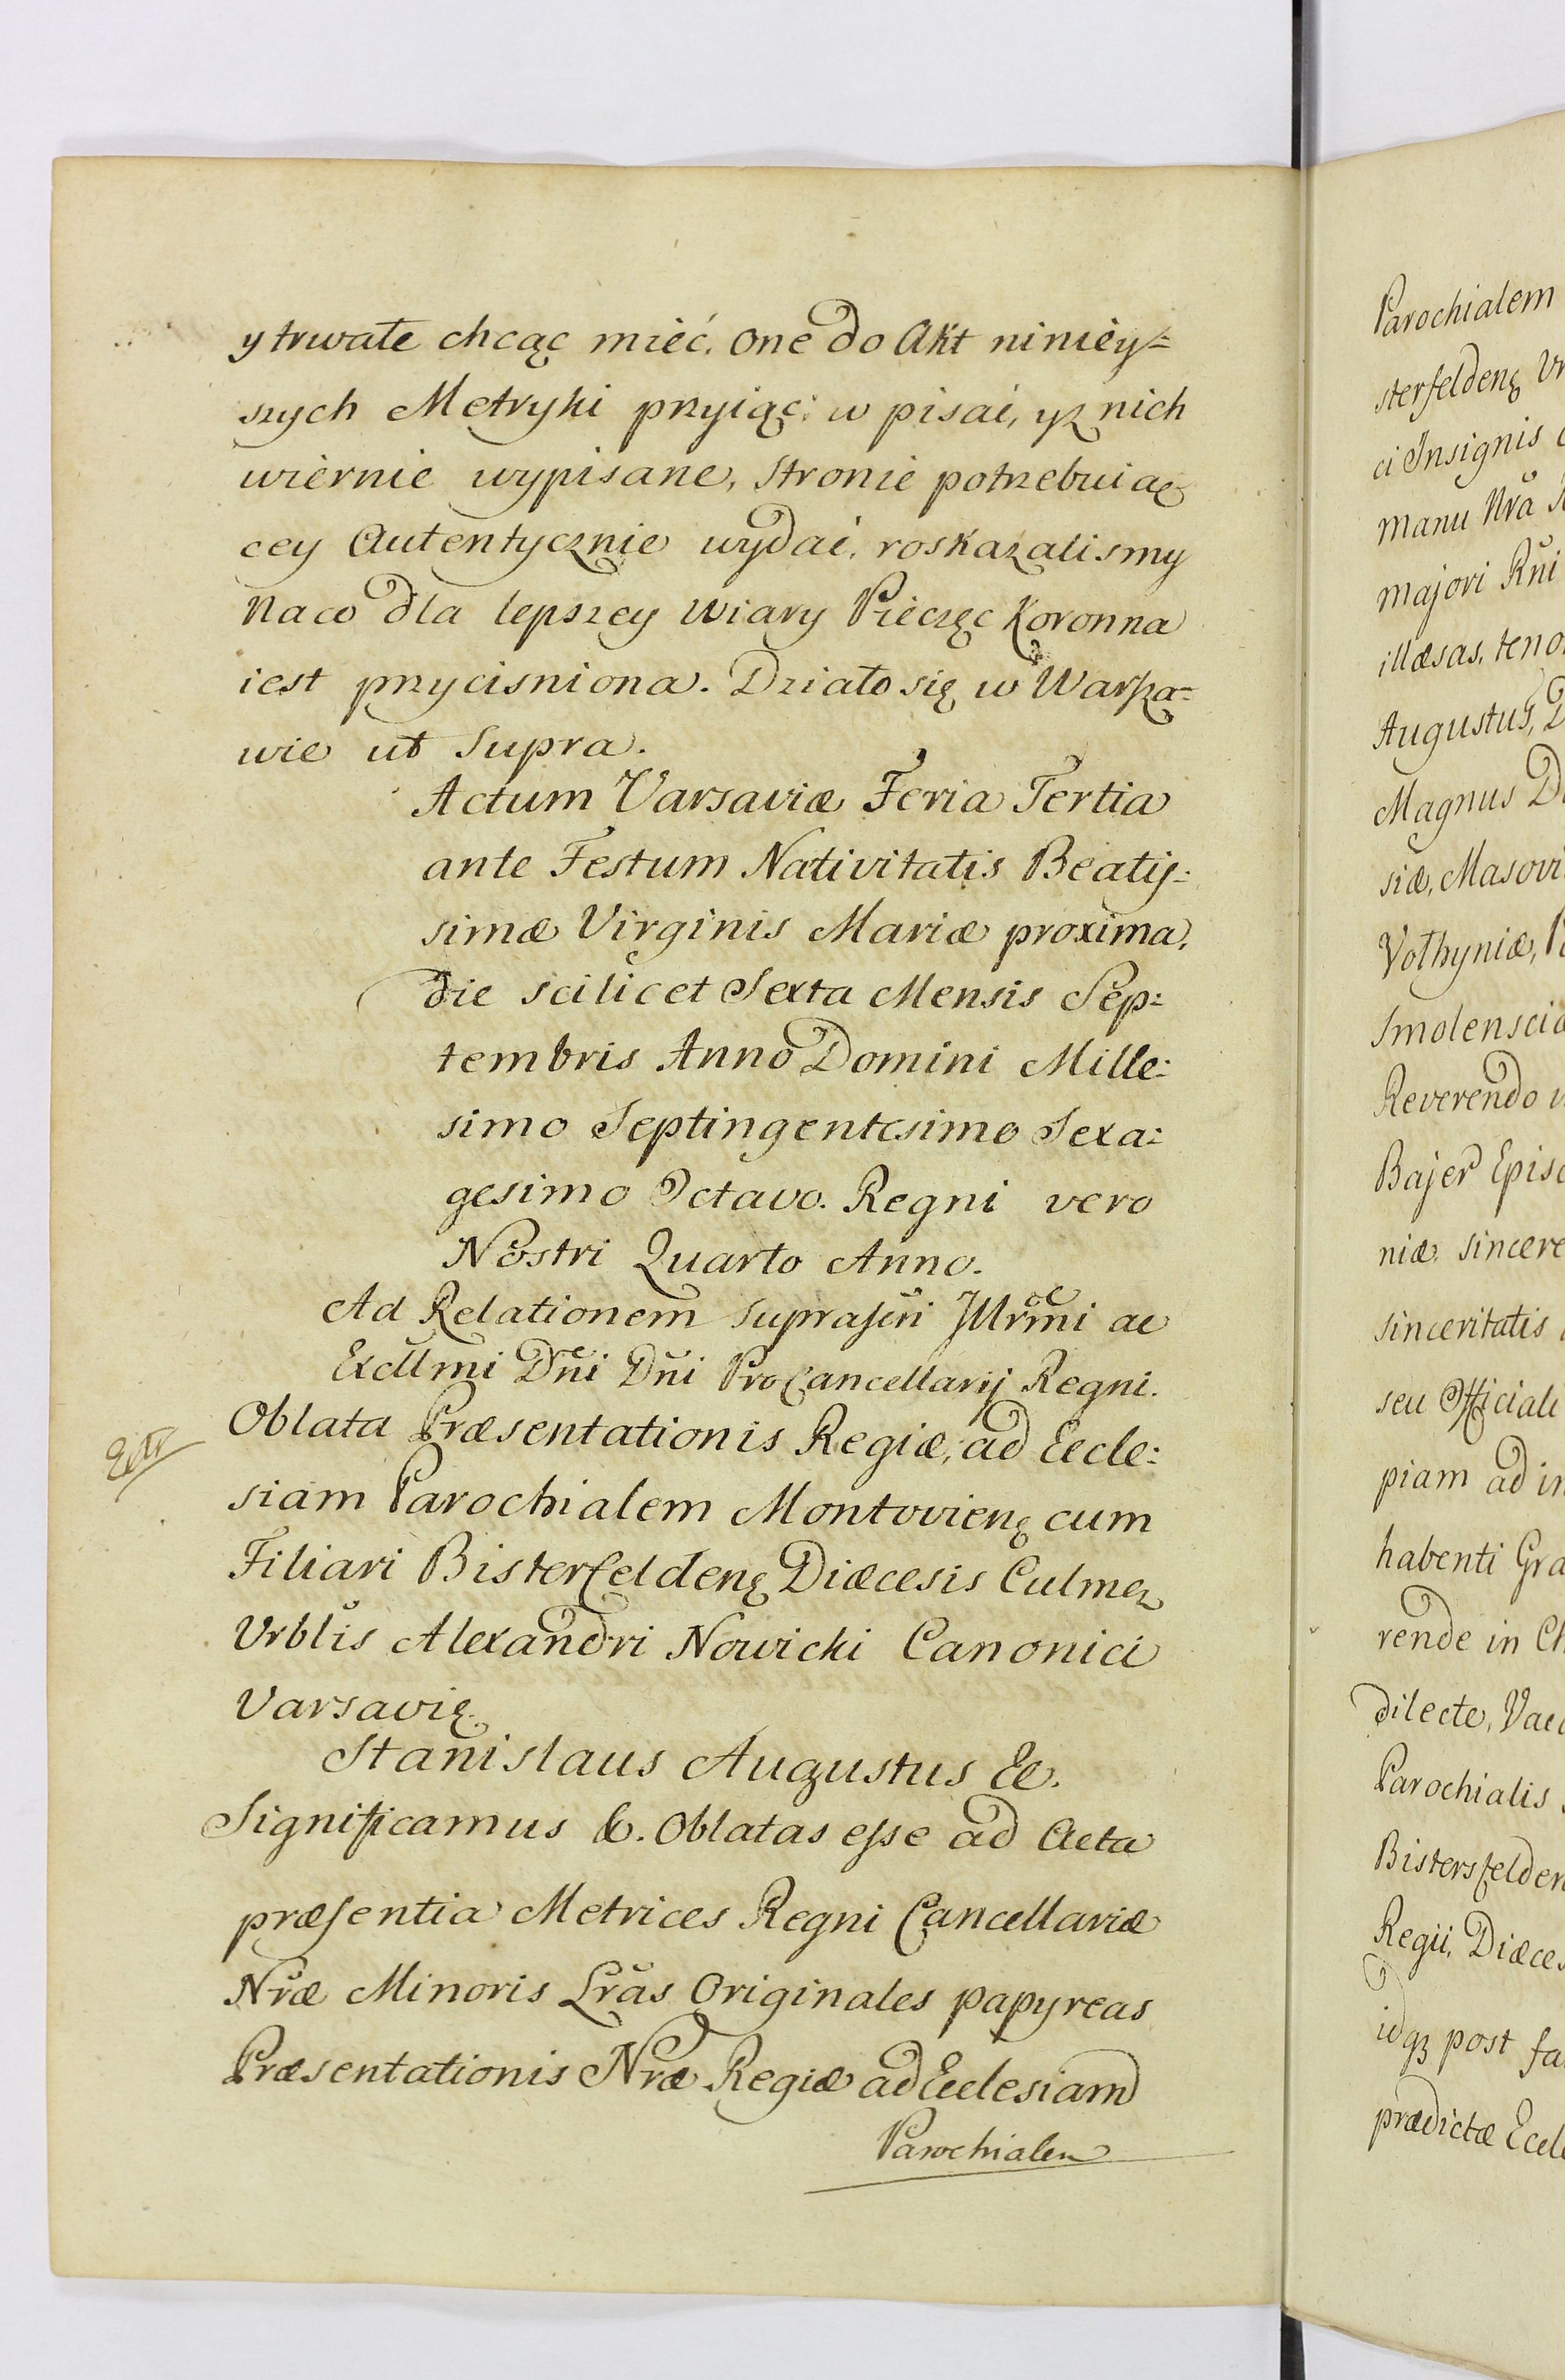 y trwałe chcąc mieć. one do Akt niniey=
szych Metryki przyiąc: w pisać, y z nich
wiernie wypisane, Stronie potrzebuią
cey Autentycznie wydać, roskazalismy
Na co dla lepszey wiary Pieczęc Koronna
iest przycisniona. Działo się w Warsza=
wie ut Supra.
Actum Varsaviæ Feria Tertia
ante Festum Nativitatis Beatis:
simæ Virginis Mariæ proxima,
die scilicet Sexta Mensis Sep:
tembris Anno Domini Mille:
simo Septingentesimo Sexa:
gesimo Octavo. Regni vero
Nostri Quarto Anno.
Ad Relationem suprascri Illrmi ac
Excllmi Dni Dni ProCancellarij Regni.
Extr
Oblata Præsentationis Regiæ, ad Eccle:
siam Parochialem Montovienę cum
Filiari Bisterfeldenę Diæcesis Culmen
Vrblis Alexandri Nowicki Canonici
Varsavię.
Stanislaus Augustus &c.
Significamus &c. Oblatas esse ad Acta
præsentia Metrices Regni Cancellariæ
Nræ Minoris Lras Originales papyreas
Præsentationis Nræ Regiæ ad Ecclesiam
Parochialem
Parochialem
sterfeldenę Vr
ci Insignis
manu Nra
majori Rni
illæsas, teno
Augustus, D
Magnus D
siæ, Masovi
Volhyniæ,
Smolensciæ
Reverendo
Bajer Episc
niæ, sincere
sinceritatis
seu Officiali
piam ad in
habenti Gra
rende in Ch
dilecte, Vac
Parochialis
Bistersfelden
Regii, Diæces
idqȝ post fa
prædictæ Eccle